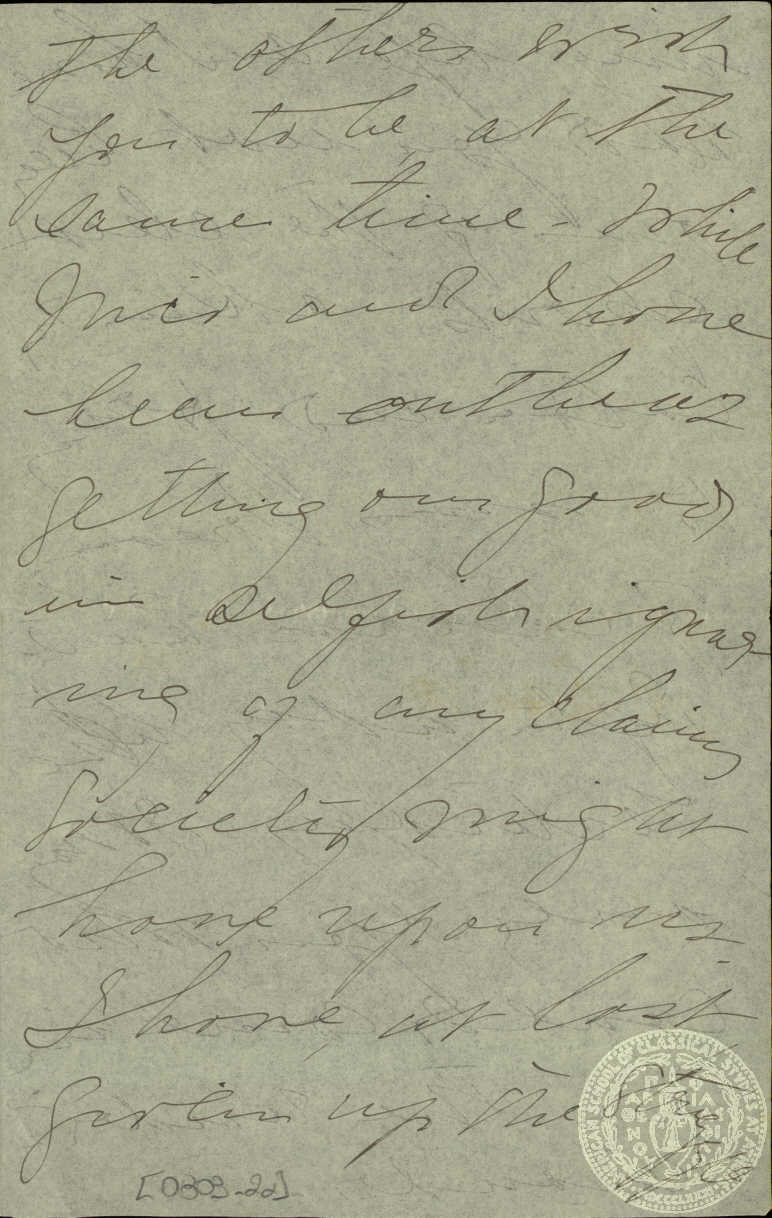 the others wish
you to be, at the
same time - while
and I have
been
getting our good
in selfish ignor-
ing of any claims
Society might
have upon us.
I have, at last,
given up the
[0303-22]
AMERICAN SCHOOL OF CLASSICAL STUDIES AT